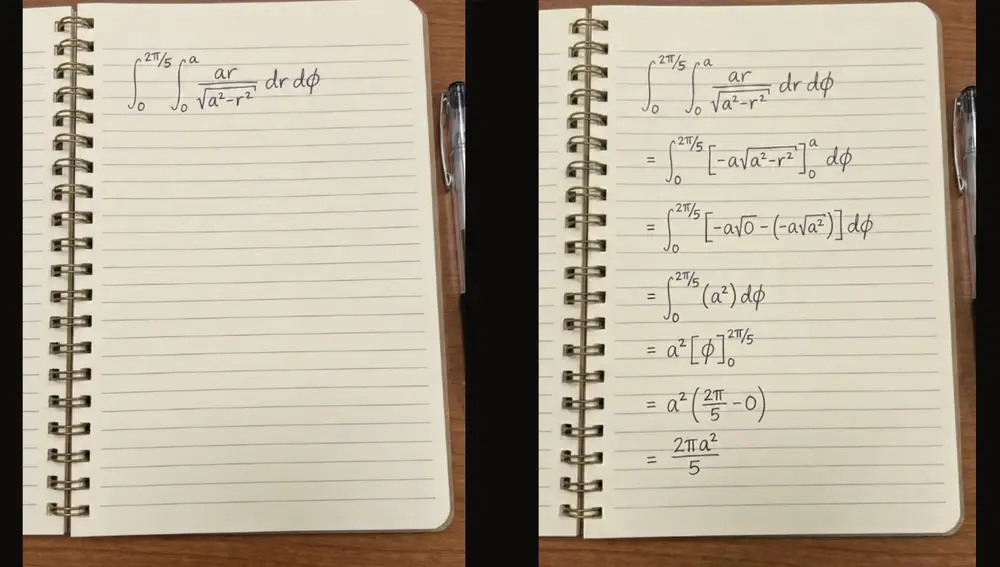 ∫₀^{2π/5} ∫₀^a ar/√(a²−r²) dr dϕ
∫₀^{2π/5} ∫₀^a ar/√(a²−r²) dr dϕ
= ∫₀^{2π/5} [−a√(a²−r²)]₀^a dϕ
= ∫₀^{2π/5} [−a√0 − (−a√a²)] dϕ
= ∫₀^{2π/5} (a²) dϕ
= a² [ϕ]₀^{2π/5}
= a² (2π/5 − 0)
= 2πa²/5